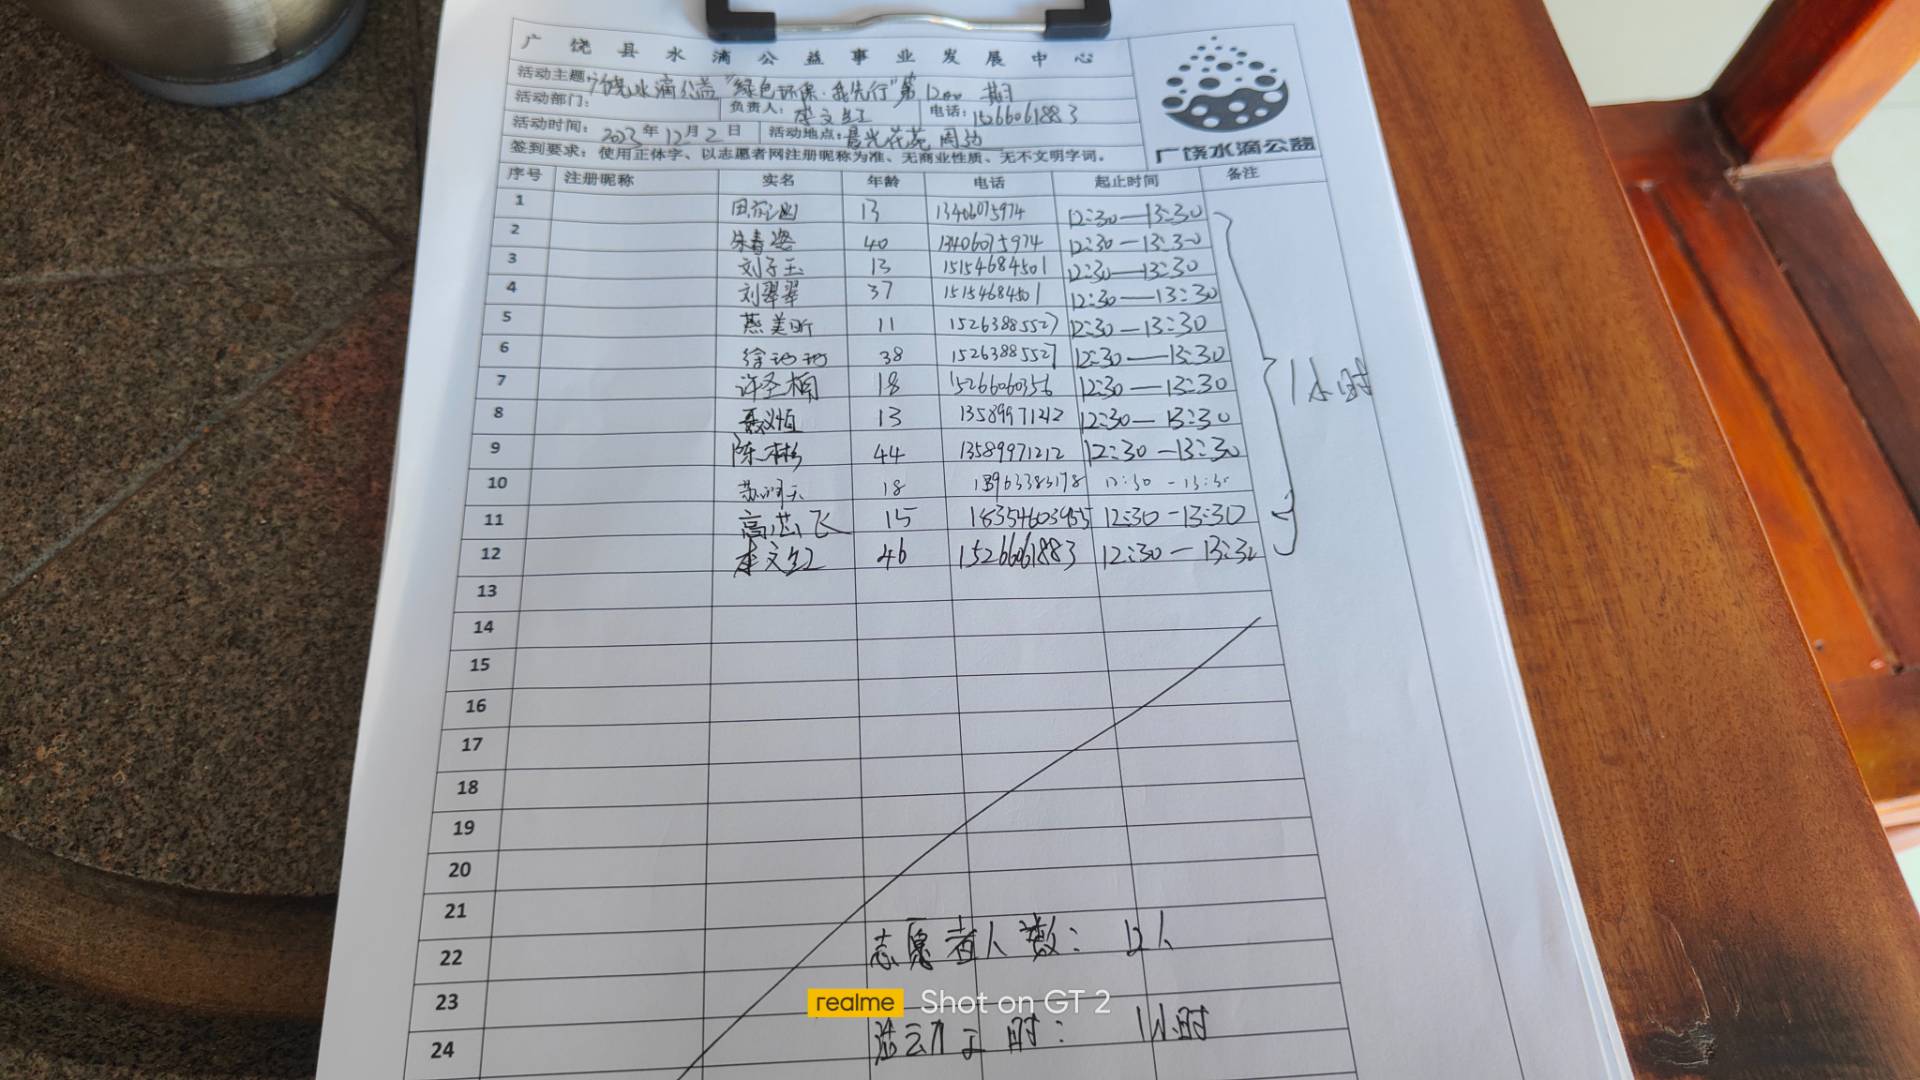 广饶县水滴公益事业发展中心
活动主题:广饶水滴公益"绿色环保·我先行"第1200期
活动部门: 负责人:李文红 电话:15266061883
活动时间:2023年12月2日 活动地点:晨光花苑周边
签到要求:使用正体字、以志愿者网注册昵称为准、无商业性质、无不文明字词。
广饶水滴公益
序号 注册昵称 实名 年龄 电话 起止时间 备注
1 13 13406075974 12:30—13:30
2 朱春姿 40 13406075974 12:30—13:30
3 刘子玉 13 15154684501 12:30—13:30
4 刘翠翠 37 15154684501 12:30—13:30
5 燕美昕 11 15263885527 12:30—13:30
6 38 15263885527 12:30—13:30
7 许圣楠 18 15266060356 12:30—13:30
1小时
8 聂义恒 13 13589971212 12:30—13:30
9 陈彬 44 13589971212 12:30—13:30
10 18 12:30-13:30
11 飞 15 12:30-13:30
12 李文红 46 15266061883 12:30—13:30
13
14
15
16
17
18
19
20
21
22 志愿者人数: 12人
23
realme Shot on GT 2
24 时: 1小时